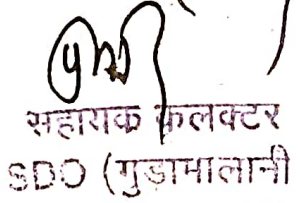 सहायक कलक्टर
SDO (गुडामालानी